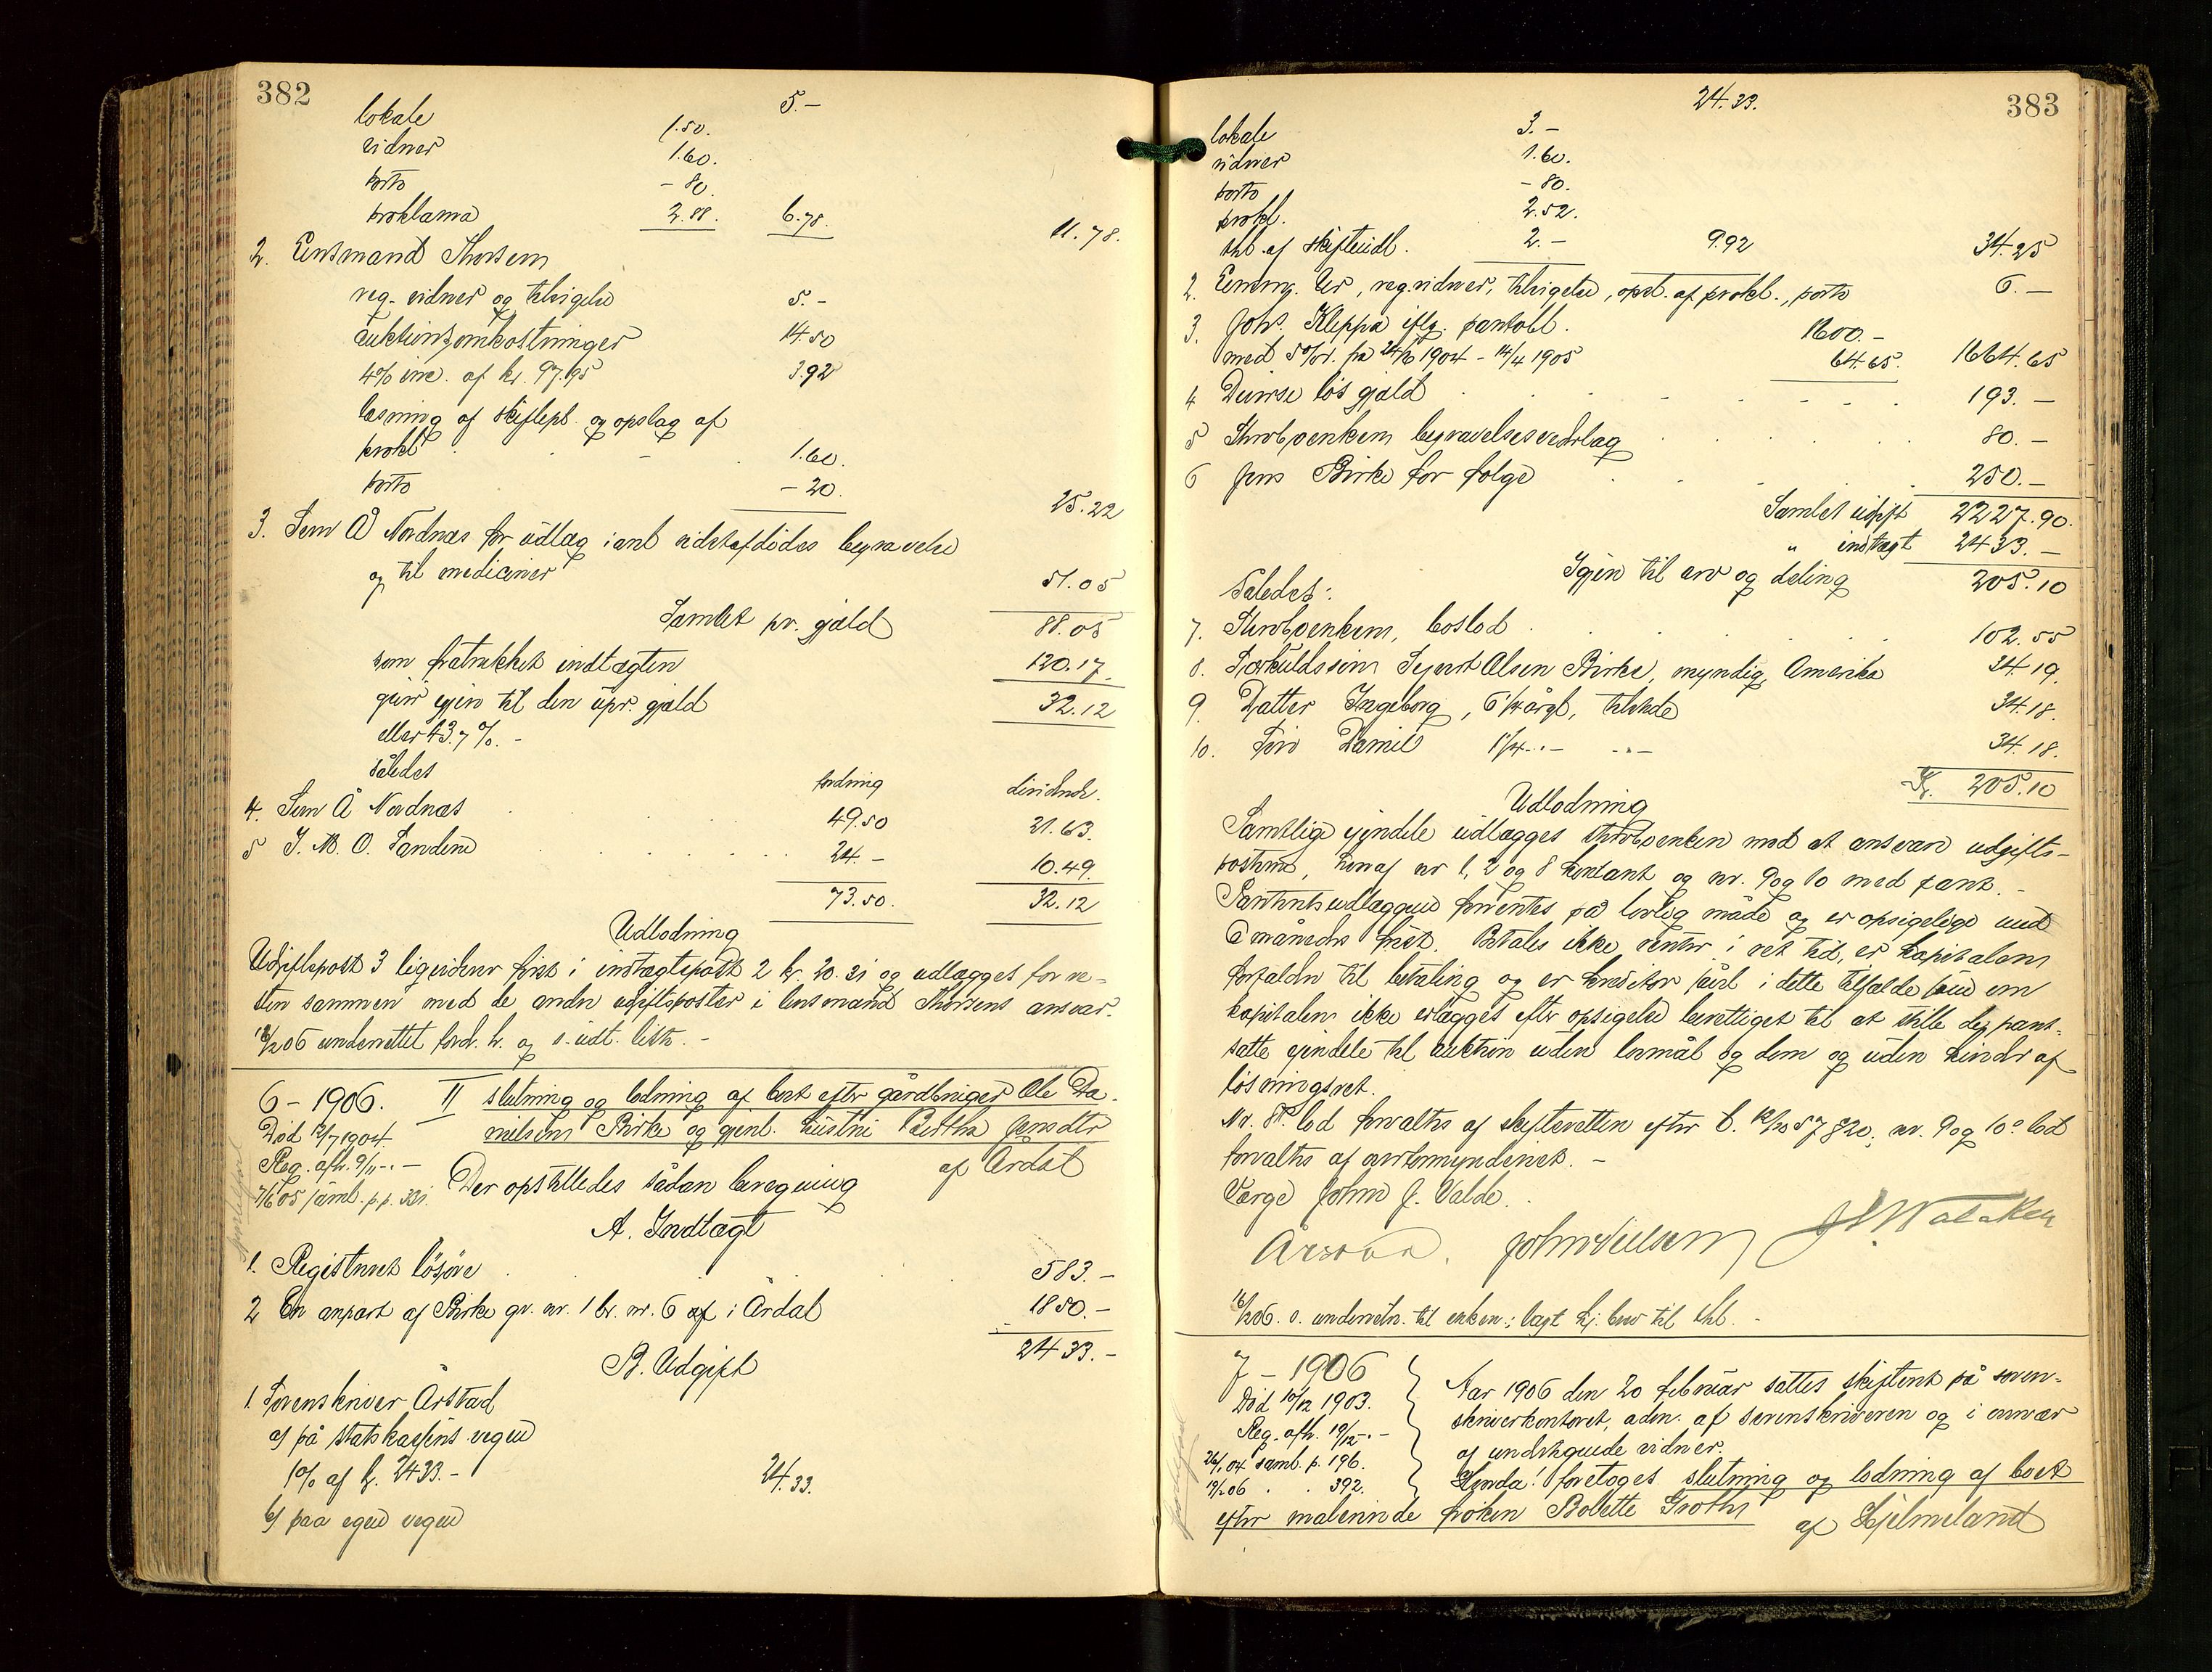 382
5.-
lokale 1.50.
vidner 1.60.
porto - 80.
proklama 2.88. 6.78. 11.78.
2. Lensmand Thorsen
reg. vidner og tilsigelse 5.-
auktionsomkostninger 14.50
4% ink. af kr. 97.95 3.92
læsning af skiftepl. og opslag af
prokl. 1.60.
porto - 20. 25.22
3. Sem Å Nordnæs for udlæg i anl sidstafdødes begravelse
og til mediciner 51.05
Samlet pr. gjæld 88.05
som fratrukket indtægten 120.17.
giver igjen til den upr. gjæld 32.12
eller 43.7 %.-
Således
fordring dividende.
4. Sem Å Nordnæs 49.50 21.63.
5 I. M. O. Sandene 24.- 10.49.
73.50. 32.12
Udlodning
Udgiftspost 3 ligviderer først i indtægtspost 2 kr. 20.31 og udlægges for re-
sten sammen med de andre udgiftsposter i lensmand Thorsens ansvar.
16/2 06 underrettet ford. h. og s. udt. liste.-
6 - 1906. II slutning og lodning af boet efter gårdbruger Ole Da-
Død 12/7 1904. nielsen Birke og gjenl. hustru Bertha Jensdtr
Reg. afh. 9/11 -.- af Årdal
7/6 05 saml. p.p. 331. Der opstilledes sådan beregning
A. Indtægt
1. Registreret løsøre 583.-
2 En anpart af Birke gr. nr. 1 br. nr. 6 af i Årdal 1850.-
2433.-
B. Udgift
1. Sorenskriver Årstad
a) på statskassens vegne
1% af kr. 2433.- 24.33.
b) paa egne vegne
383
24.33.
lokale 3.-
vidner 1.60.
porto - 80.
prokl. 2.52.
thl. af skifteudl. 2.- 9.92 34.25
2. Lensm. Ur, reg. vidner, tilsigelse, opsl. af prokl., porto 6.-
3. Johs. Kleppa iflg. pantobl. 1600.-
med 5% r. fra 24/6 1904 - 14/4 1905 64.65. 1664.65
4 Diverse løs gjæld 193.-
5 Til enken begravelsesvederlag 80.-
6 Jens Birke for følge 250.-
Samlet udgift 2227.90.
" indtægt 2433.-
Igjen til arv og deling 205.10
Således:
7. Enken, boslod 102.55
8. Særkuldssøn Sjurt Olsen Birke, myndig, Amerika 34.19.
9. Datter Ingeborg, 6 1/2 årgl, tilstede 34.18.
10. Søn Daniel 1 1/4 -.- -.- 34.18.
Kr. 205.10
Udlodning
Samtlige ejendele udlægges enken mod at ansvare udgifts-
posterne, heraf nr 1, 2 og 8 kontant og nr. 9 og 10 med pant.-
Panteudlæggene forrentes på lovlig måde og er opsigelige med
6 måneders frist. Betales ikke renter i ret tid, er kapitalen
forfalden til betaling og er kreditor såvel i dette tilfælde som om
kapitalen ikke erlægges efter opsigelse berettiget til at stille de pant-
satte ejendele til auktion uden lovmål og dom og uden hinder af
løsningsret.
Nr. 8s lod forvaltes af skifteretten efter l. 12/10 57 § 20; nr. 9 og 10s lod
forvaltes af overformynderiet.-
Værge John J. Valde.
Årstad. John Nilsen
16/2 06. s. underretn. til enken; lagt hj. brev til thl.-
7 - 1906 Aar 1906 den 20 februar sattes skifteret på soren-
Død 10/12 1903. skriverkontoret, adm. af sorenskriveren og i nærvær
Reg. afh. 19/12 -.- af undertegnede vidner.
26/1 04 saml. p. 196. Hvorda! foretoges slutning og lodning af boet
19/2 06 . . 392.
efter malerinde frøken Bolette Groths af Hjelmeland